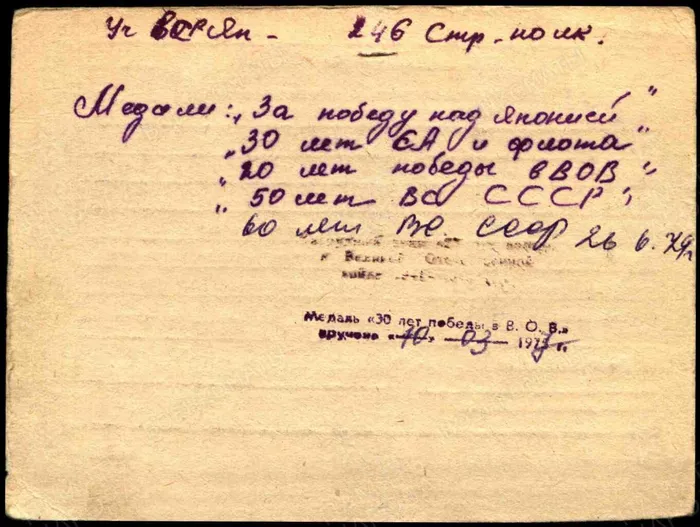 Уч ВСРЯп - 246 Стр. полк.
Медали: „За победу над Японией"
„30 лет СА и флота"
„20 лет победы в ВОВ"
„50 лет ВС СССР"
60 лет ВС. СССР 26 6. 79г
в Великой
Медаль «30 лет победы в В. О. В.»
вручена «10» 03 197